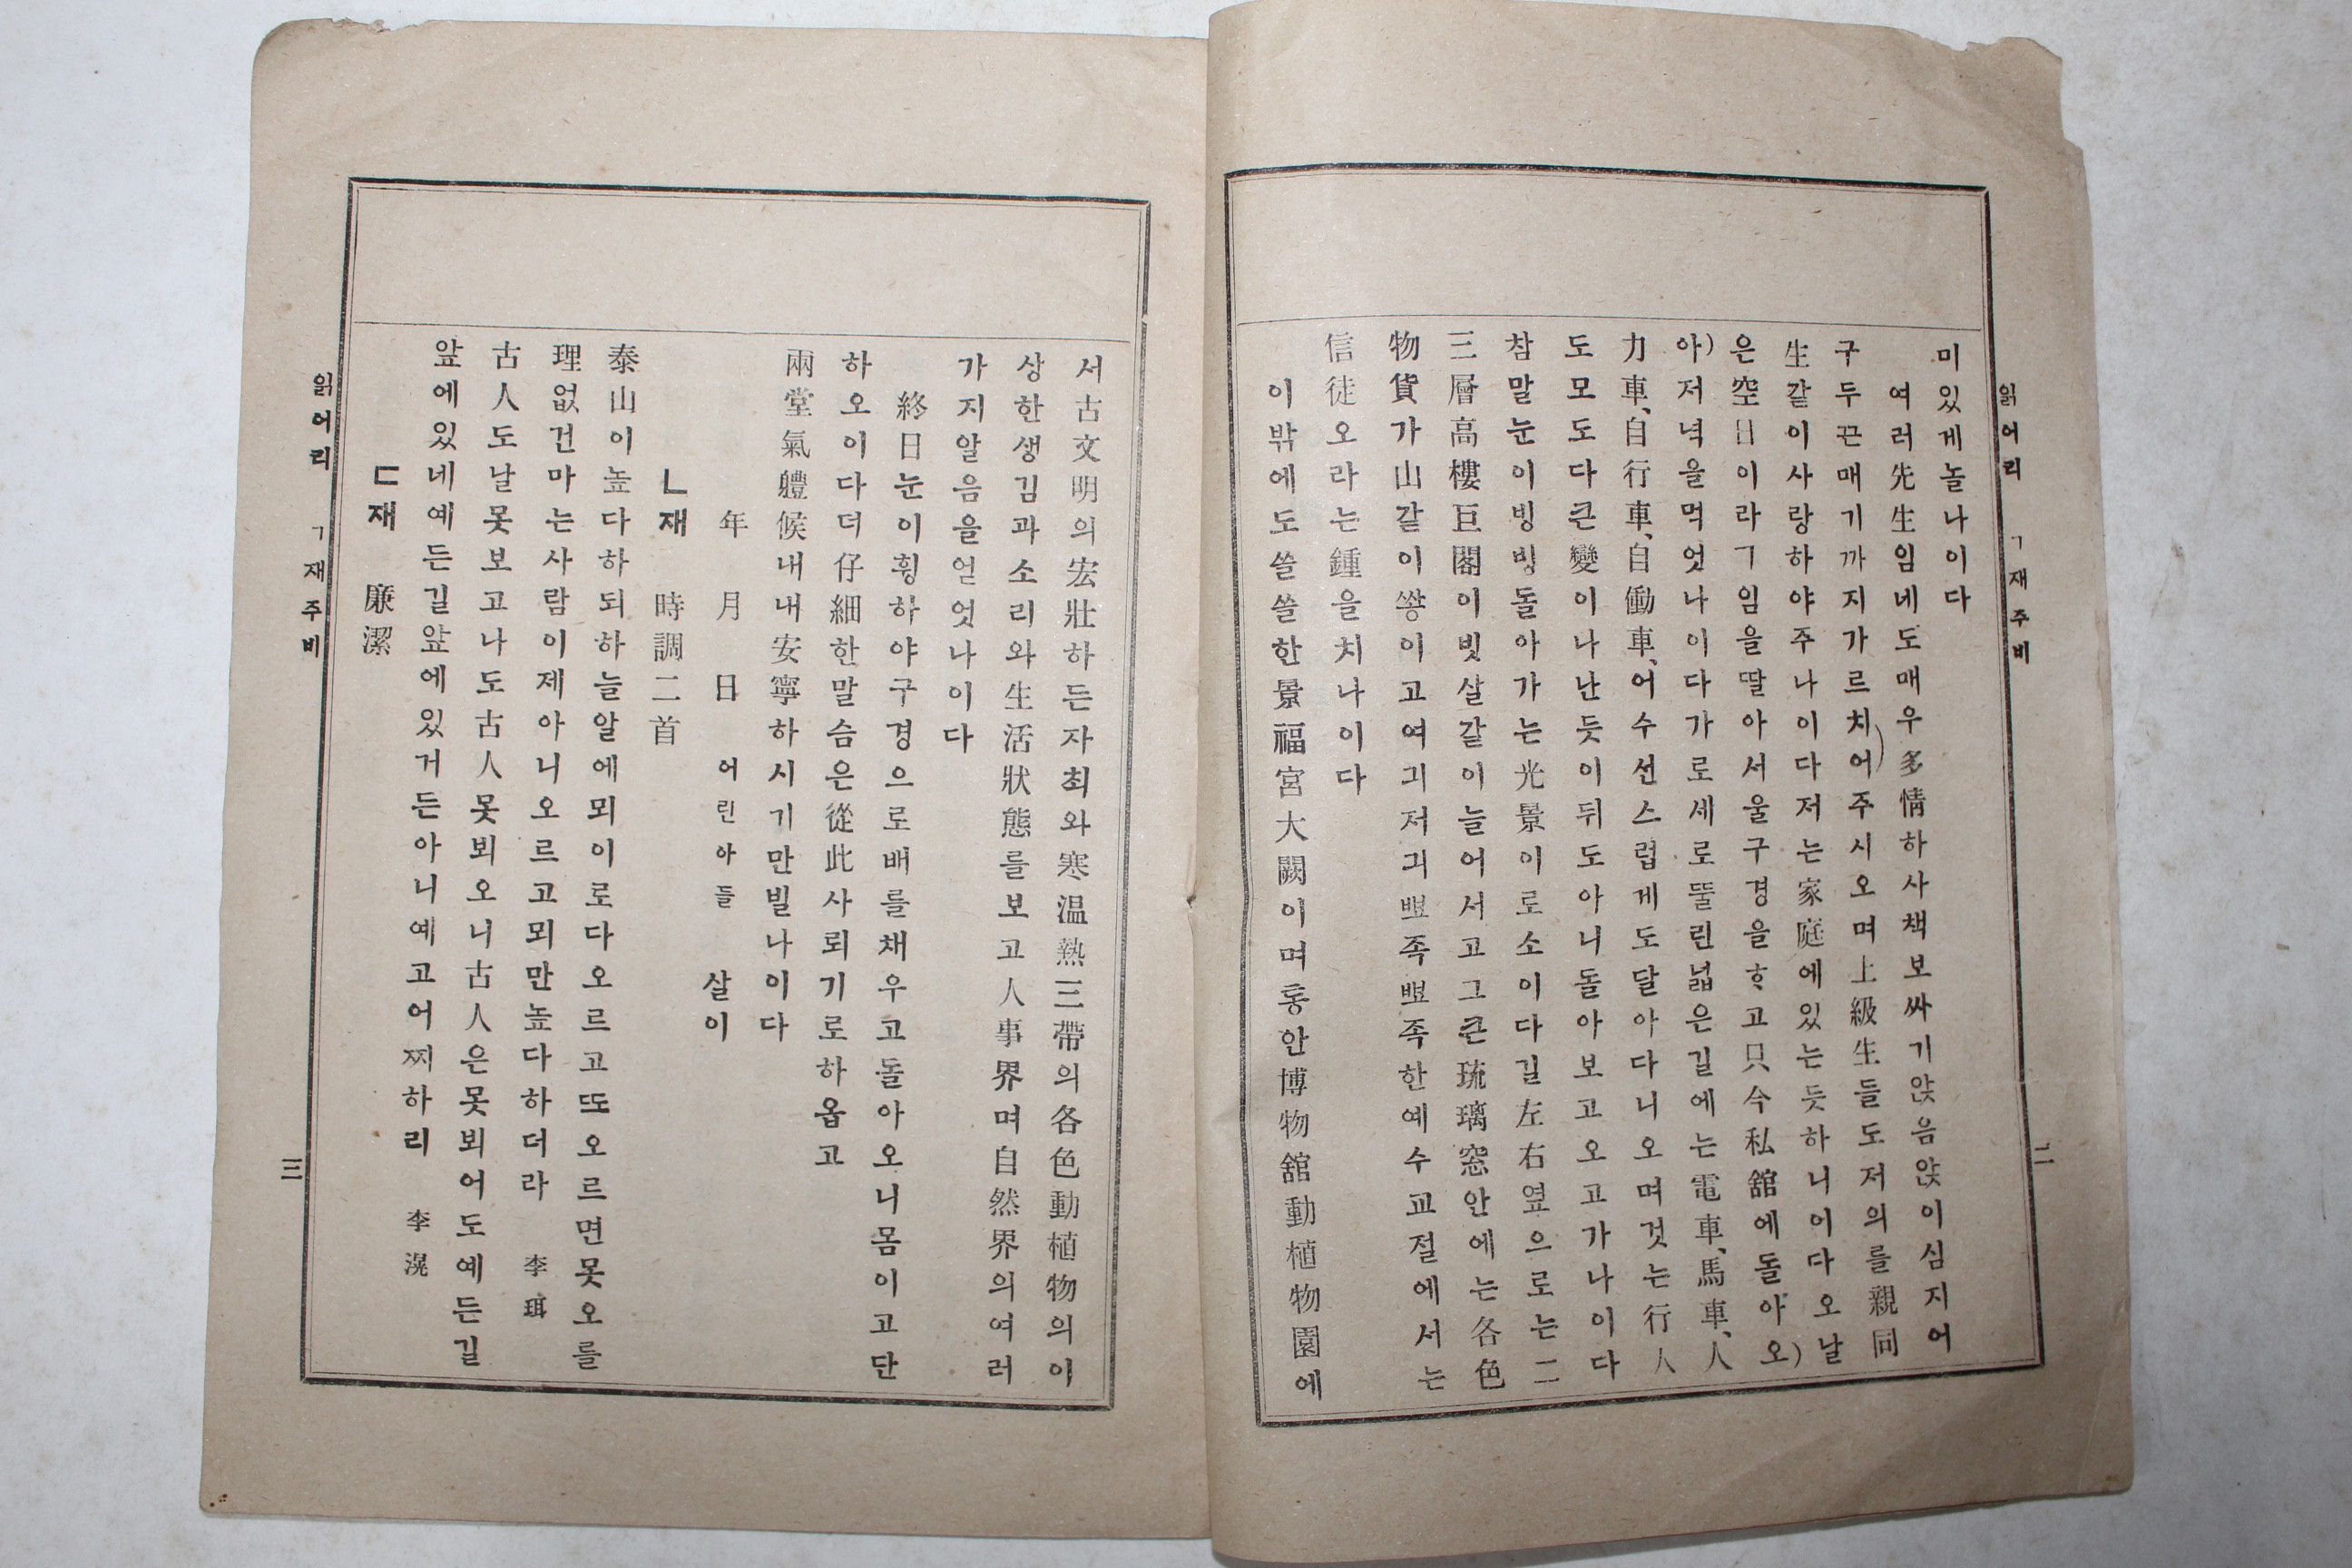 읽어리 ㄱ재주비 二
미있게놀나이다
여러先生임네도매우多情하사책보싸기앉음앉이심지어
구두끈매기까지가르치어)주시오며上級生들도저의를親同
生같이사랑하야주나이다저는家庭에있는듯하니이다오날
은空日이라ㄱ임을딸아서울구경을ㅎ고只今私舘에돌아오)
아)저녁을먹엇나이다가로세로뚤린넓은길에는電車、馬車、人
力車、自行車、自働車、어수선스럽게도달아다니오며것는行人
도모도다큰變이나난듯이뒤도아니돌아보고오고가나이다
참말눈이빙빙돌아가는光景이로소이다길左右옆으로는二
三層高樓巨閣이빗살같이늘어서고그큰琉璃窓안에는各色
物貨가山같이쌓이고여긔저긔뾰족뾰족한예수교절에서는
信徒오라는鍾을치나이다
이밖에도쓸쓸한景福宮大闕이며통안博物舘動植物園에
서古文明의宏壯하든자최와寒温熱三帶의各色動植物의이
상한생김과소리와生活狀態를보고人事界며自然界의여러
가지알음을얻엇나이다
終日눈이휭하야구경으로배를채우고돌아오니몸이고단
하오이다더仔細한말슴은從此사뢰기로하옵고
兩堂氣軆候내내安寧하시기만빌나이다
年 月 日 어린아들 살이
ㄴ재 時調二首
泰山이높다하되하늘알에뫼이로다오르고또오르면못오를
理없건마는사람이제아니오르고뫼만높다하더라 李珥
古人도날못보고나도古人못뵈오니古人은못뵈어도예든길
앞에있네예든길앞에있거든아니예고어찌하리 李滉
ㄷ재 廉潔
읽어리 ㄱ재주비 三